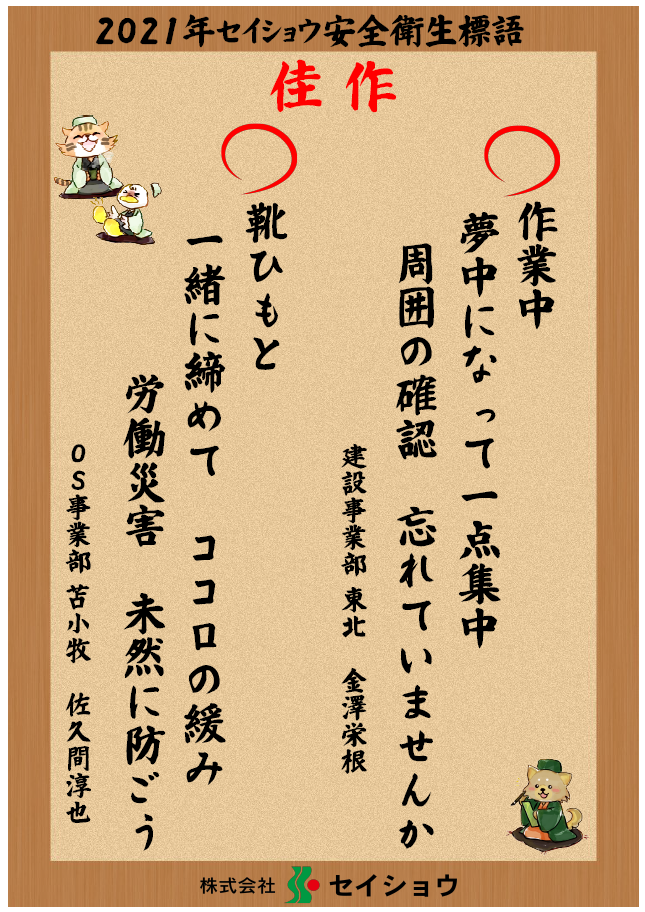 2021年セイショウ安全衛生標語
佳作
作業中
夢中になって一点集中
周囲の確認　忘れていませんか
建設事業部 東北　金澤栄根
靴ひもと
一緒に締めて　ココロの緩み
労働災害　未然に防ごう
OS事業部 苫小牧　佐久間淳也
株式会社 セイショウ